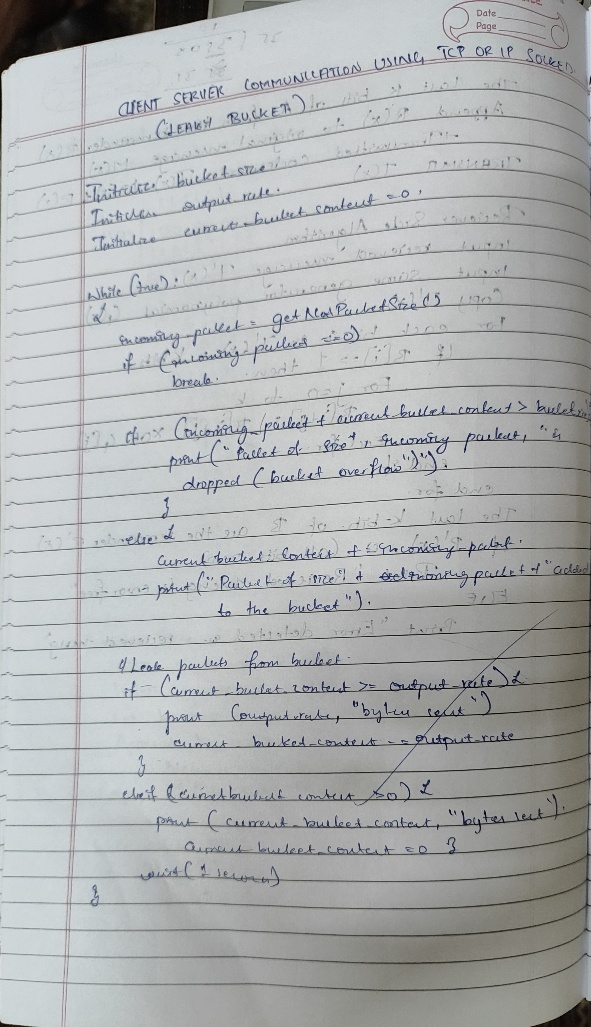 Date
Page
CLIENT SERVER COMMUNICATION USING TCP OR IP SOCKET
(LEAKY BUCKET)
Initialize bucket size
Initialize output rate.
Initialize current-bucket content = 0.
While (true):
{
incoming-packet = getNextPacketSize()
if (incoming-packet == 0)
break.
if (incoming-packet + current bucket content > bucket
print ("Packet of size", incoming packet, "is
dropped (bucket overflow)");
}
else {
current bucket content += incoming-packet.
print ("Packet of size" + incoming packet + "added
to the bucket").
// Leak packets from bucket.
if (current_bucket_content >= output_rate) {
print (output_rate, "bytes sent")
current_bucket_content -= output_rate
}
else if (current bucket content >0) {
print (current_bucket_content, "bytes sent").
current bucket_content = 0 }
wait (1 second)
}